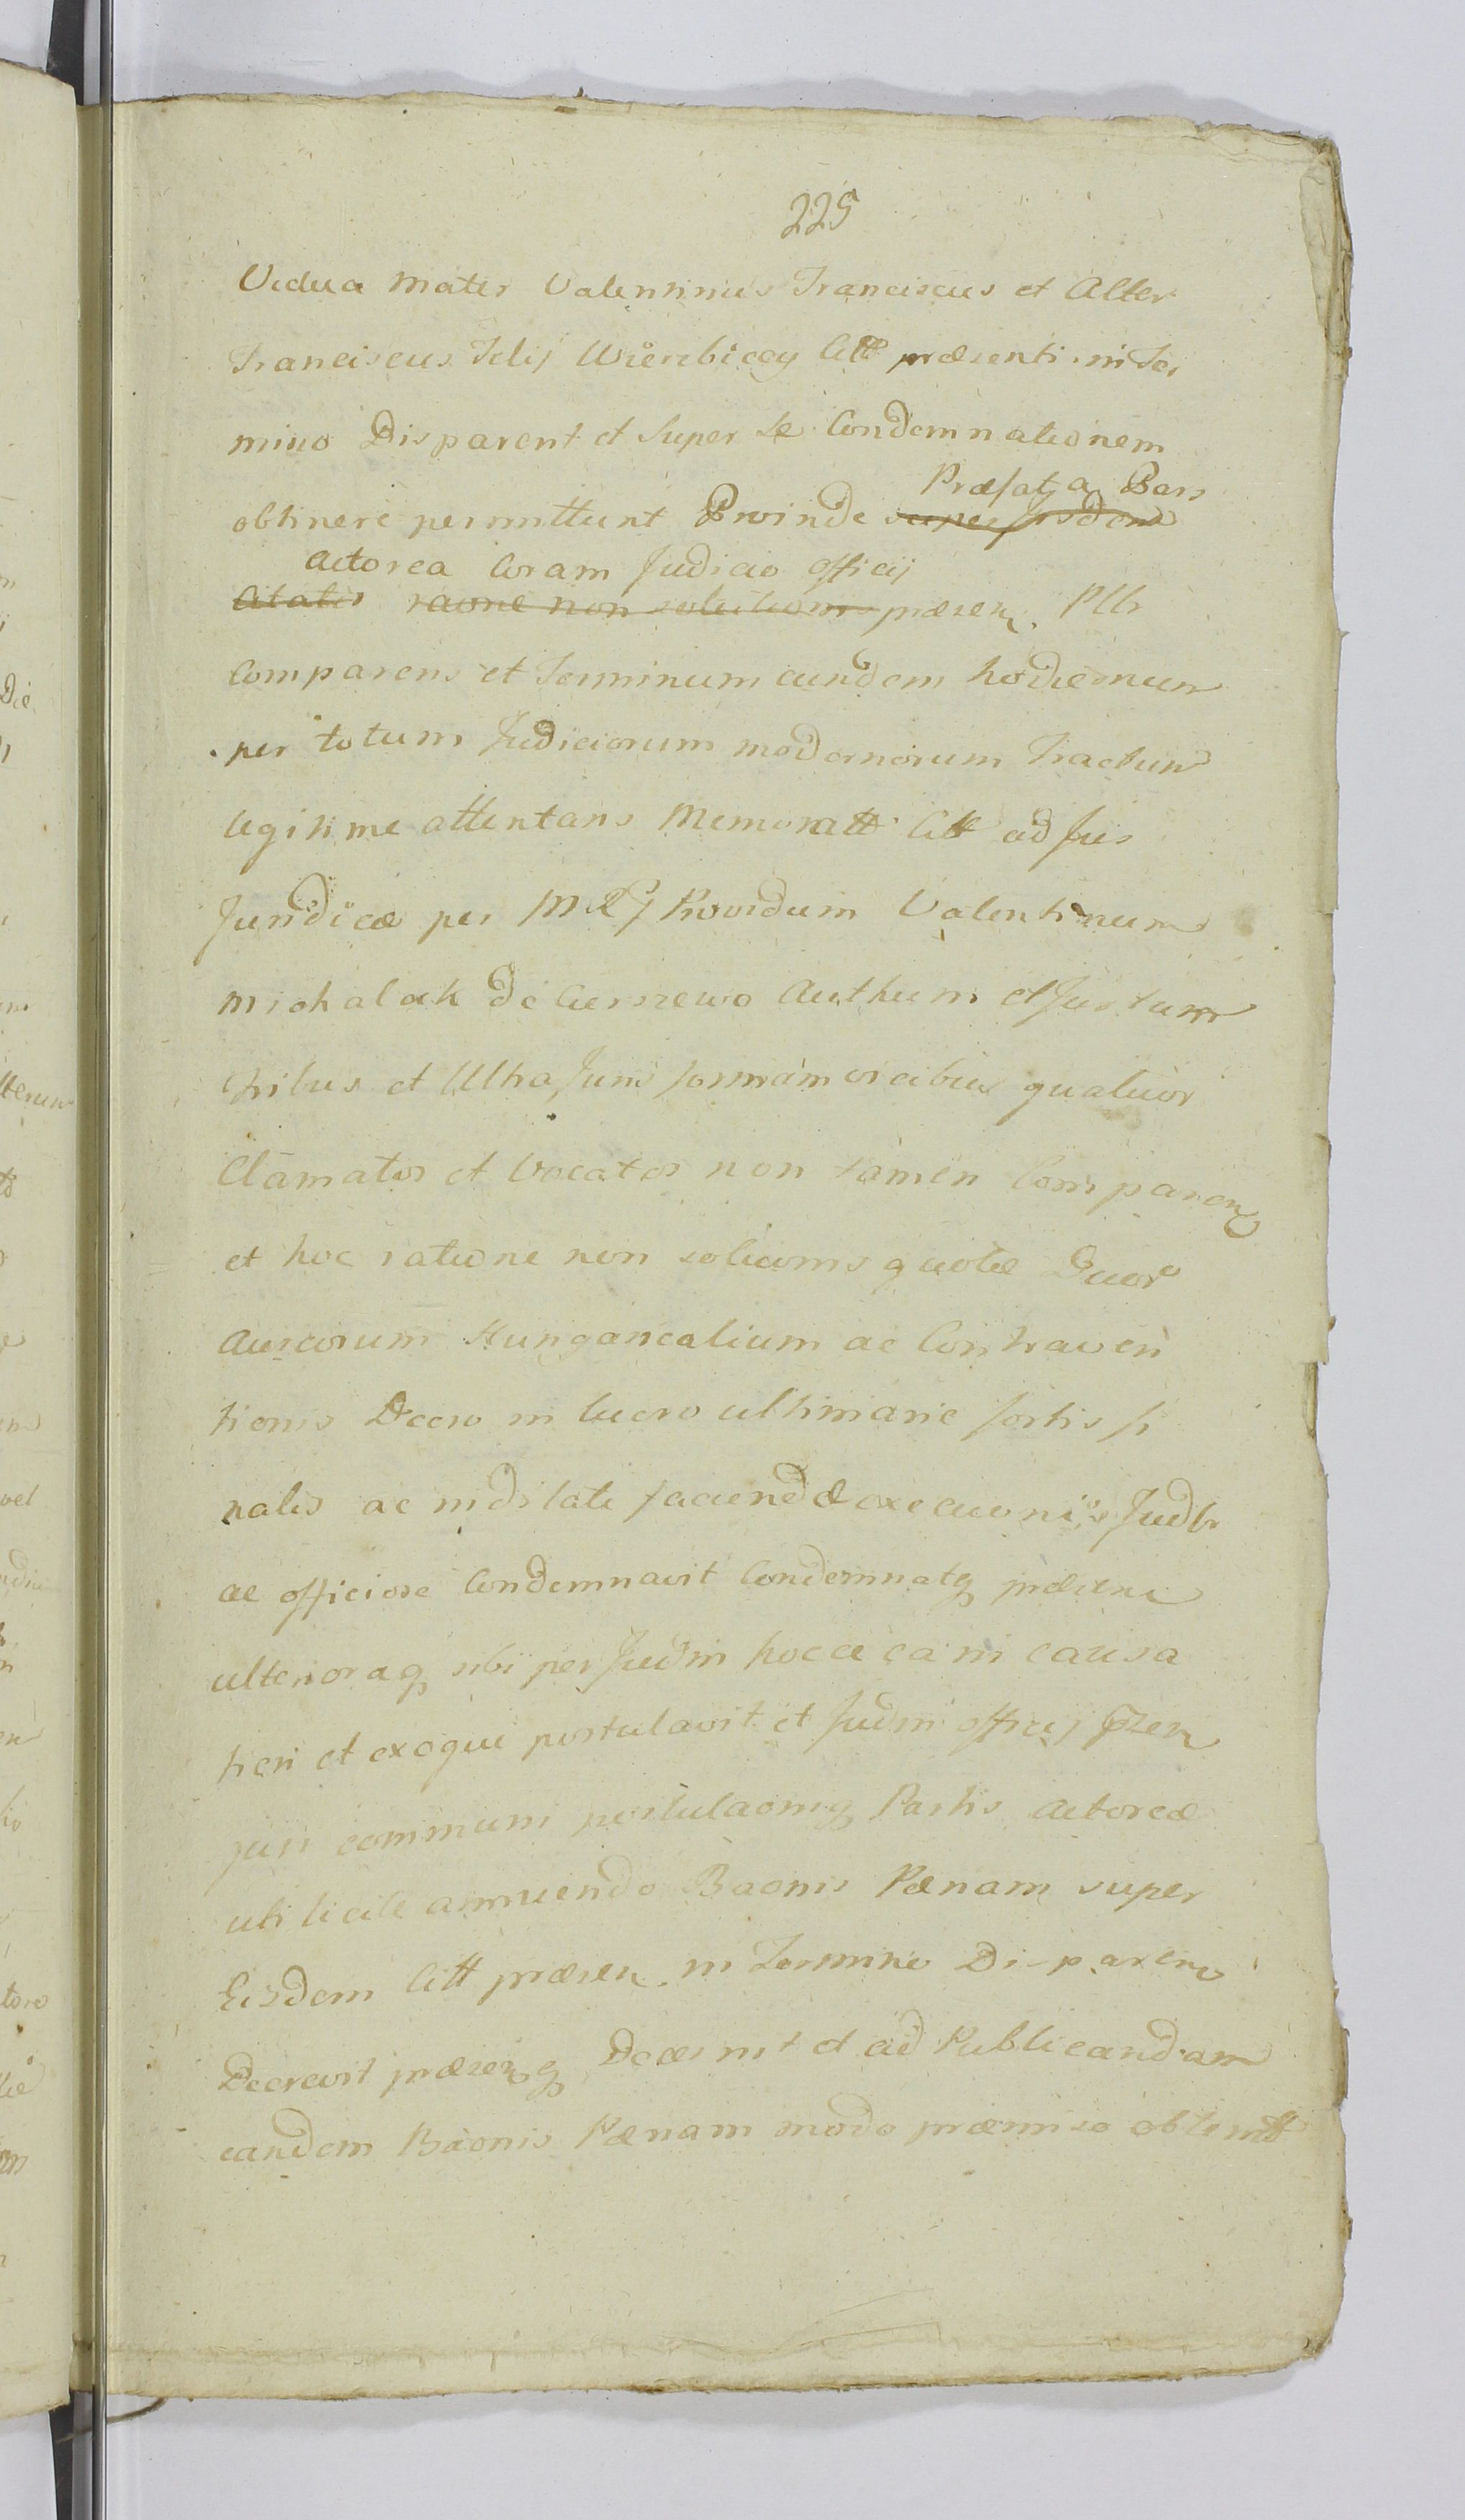 225
Vidua Mater Valentinus Franciscus et Alter
Franciscus Filij Wierzbiccy Citt præsenti in Ter
mino Disparent et Super Se Condemnationem
Præfata Pars
obtinere permittunt Proinde super Jisdem
Actorea Coram Judicio Officij
Citatis raone non solutionis præsen. Plłr
Comparens et Terminum eundem hodiernum
per totum Judiciorum modernorum Tractum
legitime attentans Memoratt Citt ad Jus
Juridice per Providum Valentinum
Michalak de Authum et Juratum
tribus et Ultra Juris formam vicibus quatuor
Clamatos et Vocatos non tamen Comparen
et hoc ratione non soluoms quotæ Duor
Aureorum Hungaricalium ac Contraven
tionis Decro in lucro ultimarie sortis fi
nalis ac indilate faciendæ execuonis Judłr
ac officiose Condemnavit Condemnatq præsens
ulterioraq sibi per Judm hocce ea in causa
fieri et exequi postulavit et Judm officij przen
juri communi postulaoniq Partis Actoreæ
uti licitæ annuendo Baonis Pænam super
Eisdem Citt præsen. in Termino Disparen
Decrevit præsenq Decernit et ad Publicandam
eandem Baonis Pænam modo præmisso obtentt